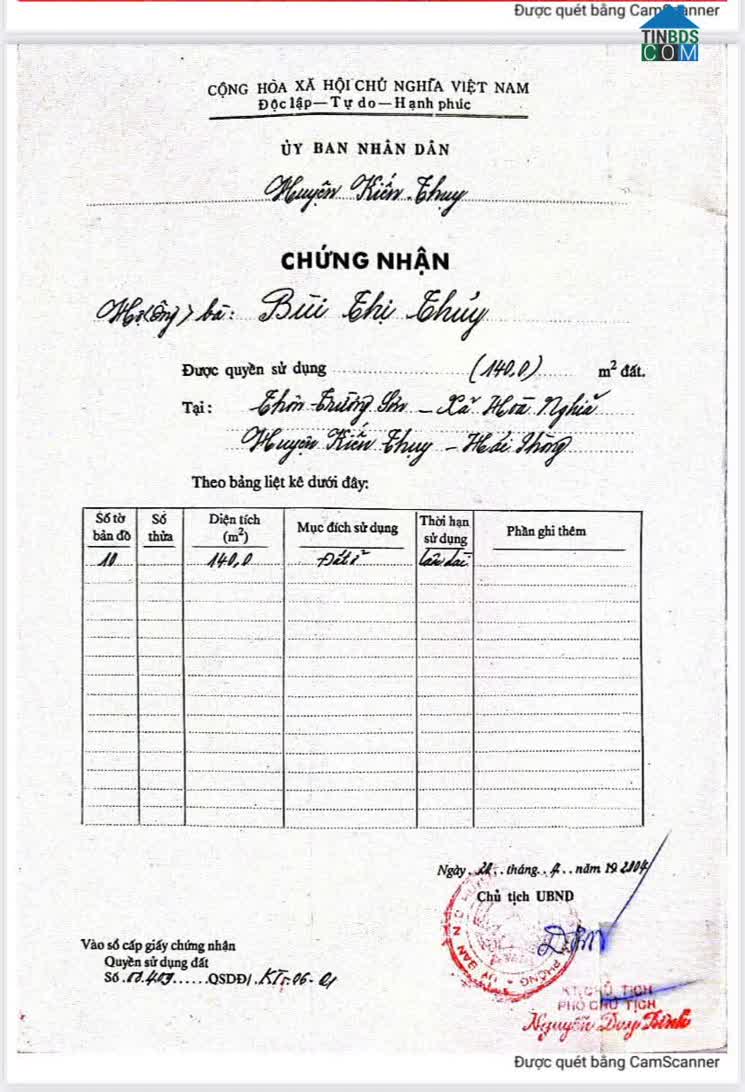 Được quét bằng CamScanner
TINBDS
COM
CỘNG HÒA XÃ HỘI CHỦ NGHĨA VIỆT NAM
Độc lập — Tự do — Hạnh phúc
ỦY BAN NHÂN DÂN
Huyện Kiến Thụy
CHỨNG NHẬN
Hộ (ông) bà: Bùi Thị Thủy
Được quyền sử dụng (140,0) m² đất.
Tại: Thôn Trường Sơn - Xã Hoà Nghĩa
Huyện Kiến Thụy - Hải Phòng
Theo bảng liệt kê dưới đây:
Số tờ bản đồ Số thửa Diện tích (m²) Mục đích sử dụng Thời hạn sử dụng Phần ghi thêm
10 140,0 Đất ở Lâu dài
Ngày tháng 4 năm 19 2004
Chủ tịch UBND
Vào sổ cấp giấy chứng nhận
Quyền sử dụng đất
Số QSDĐ/
KT. CHỦ TỊCH
PHÓ CHỦ TỊCH
Nguyễn Duy Bình
Được quét bằng CamScanner